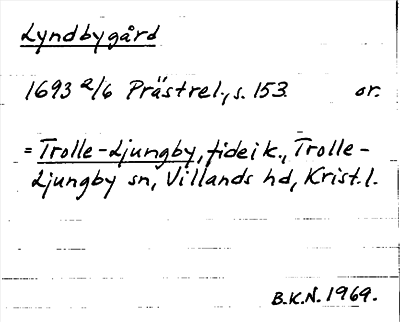 Lyndbygård
1693 2/6 Prästrel., s. 153. or.
= Trolle-Ljungby, fideik., Trolle-
Ljungby sn, Villands hd, Krist. l.
B.K.N. 1969.